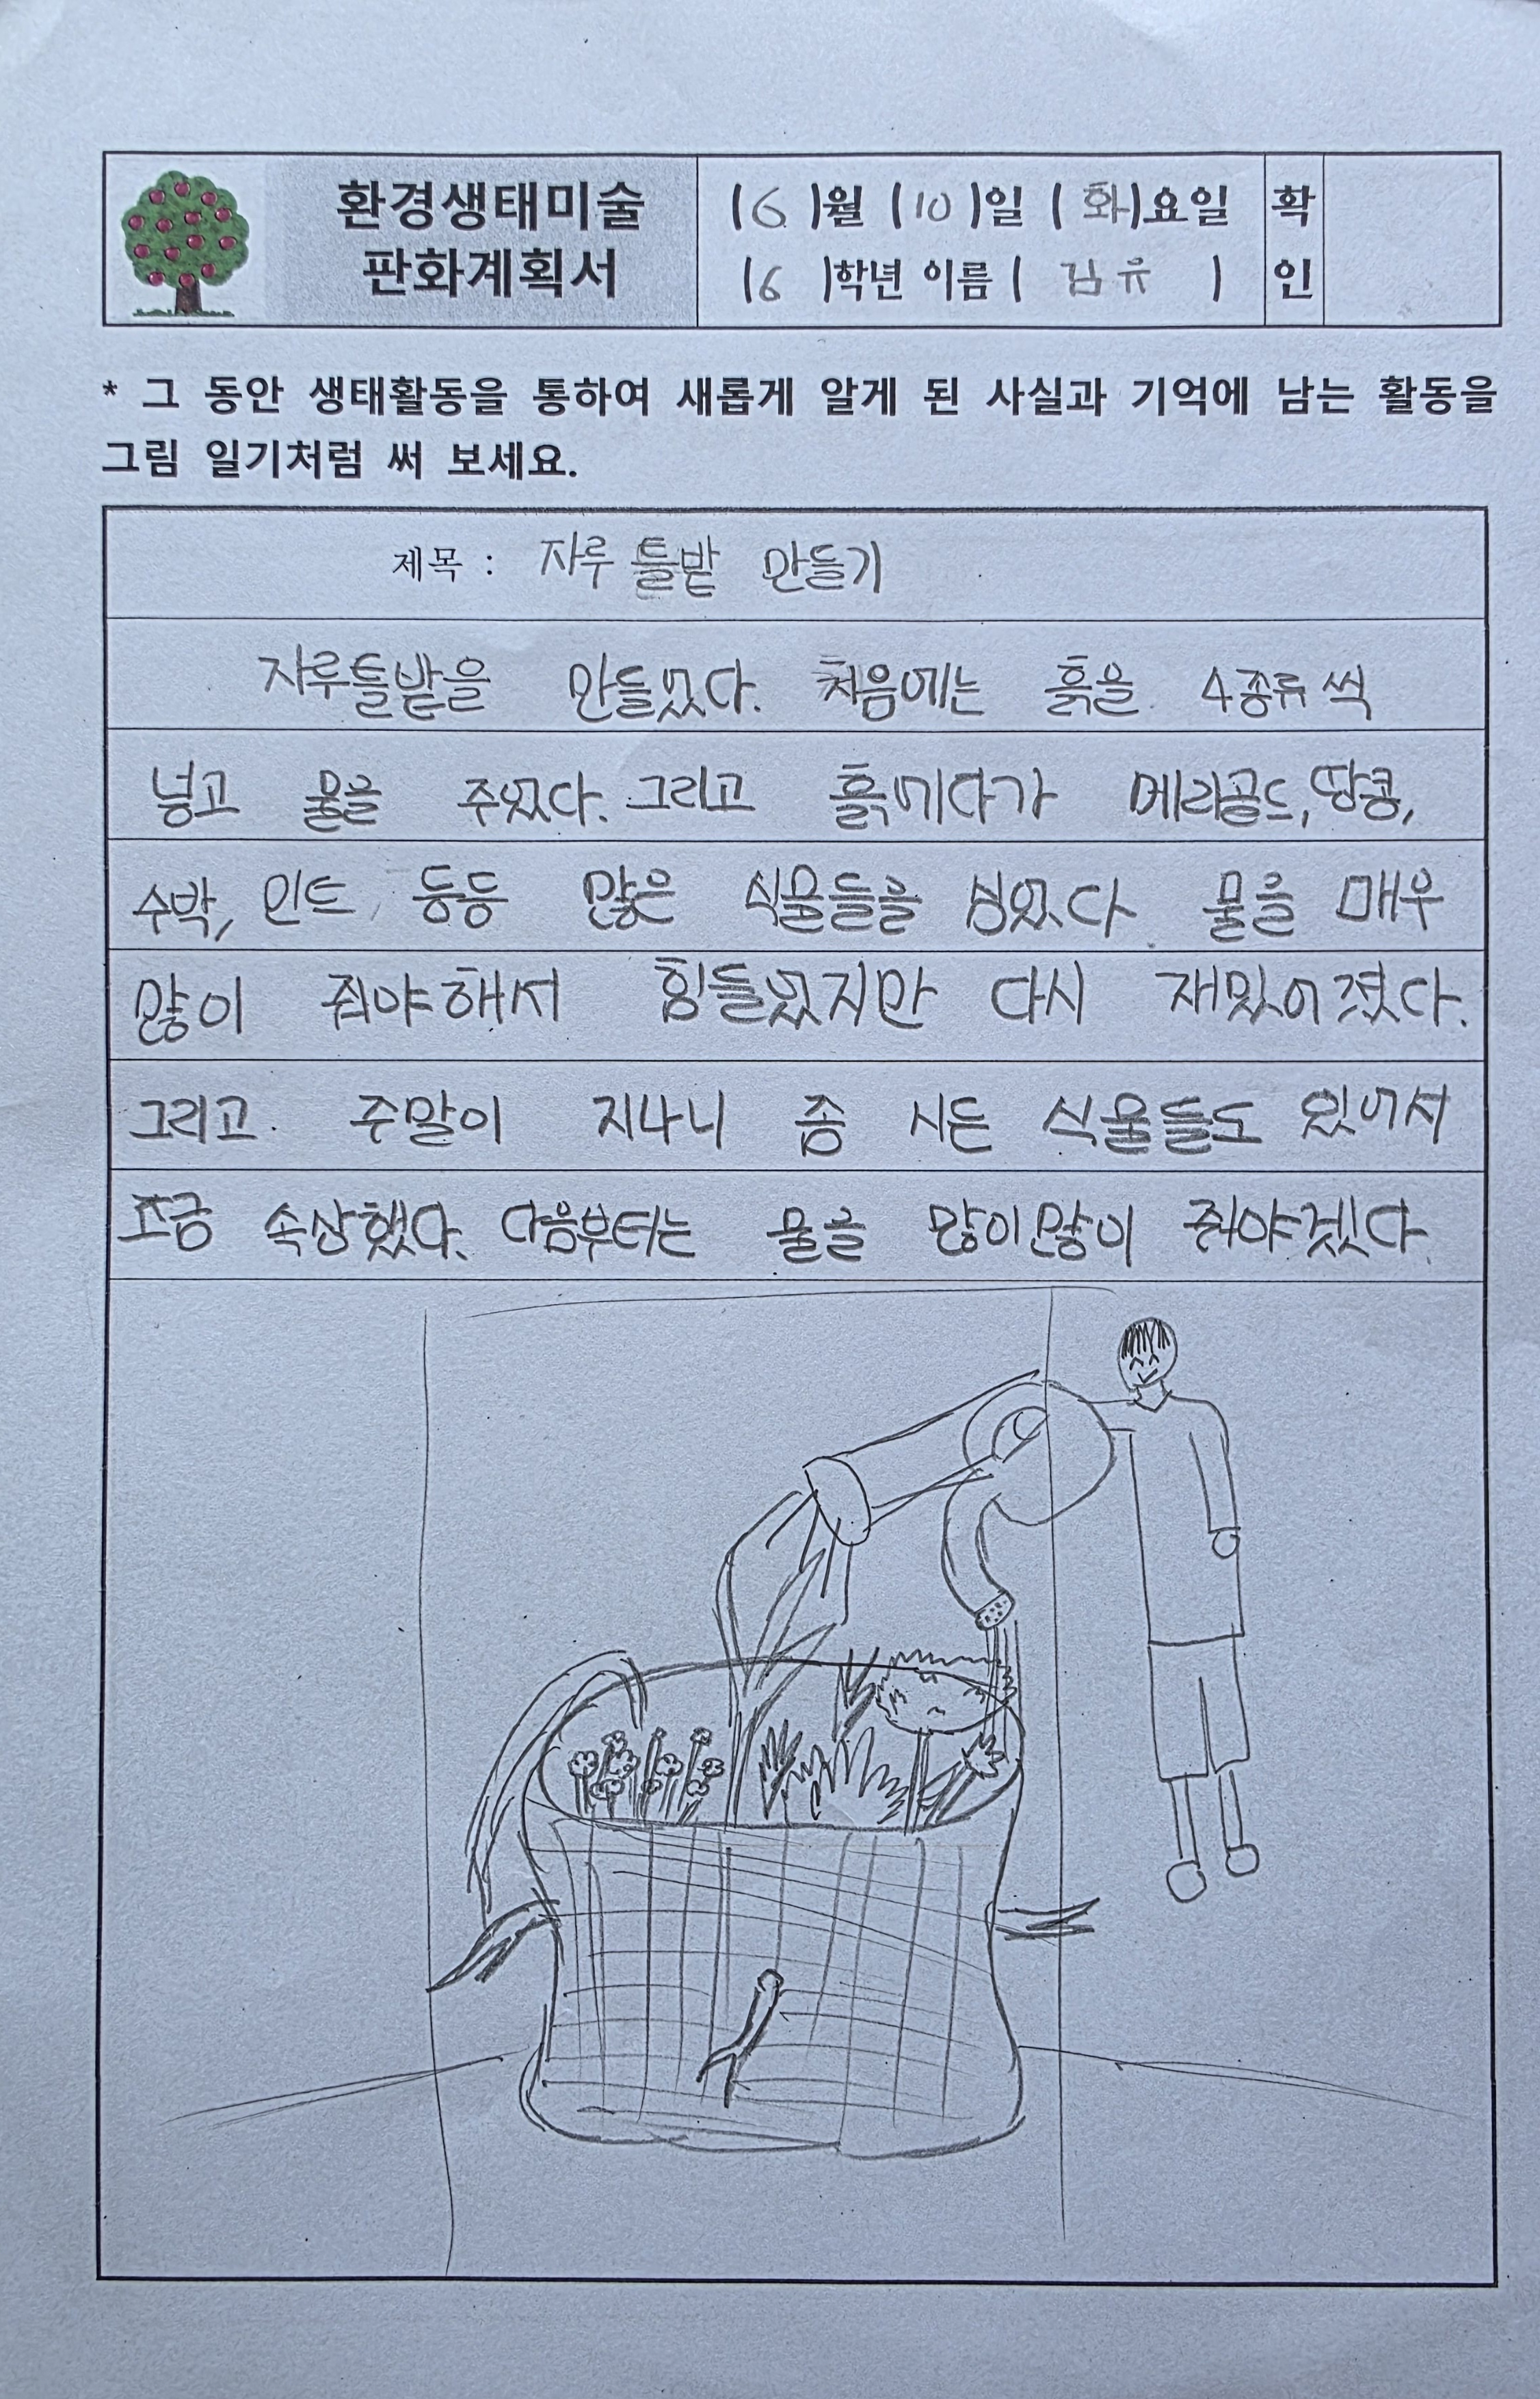 환경생태미술
판화계획서
(6)월 (10)일 (화)요일
(6)학년 이름 ( 김유 )
확
인
* 그 동안 생태활동을 통하여 새롭게 알게 된 사실과 기억에 남는 활동을
그림 일기처럼 써 보세요.
제목 : 자루 틀밭 만들기
자루틀밭을 만들었다. 처음에는 흙을 4종류씩
넣고 물을 주었다. 그리고 흙에다가 메리골드, 땅콩,
수박, 민트, 등등 많은 식물들을 심었다. 물을 매우
많이 줘야해서 힘들었지만 다시 재밌어졌다.
그리고 주말이 지나니 좀 시든 식물들도 있어서
조금 속상했다. 다음부터는 물을 많이많이 줘야겠다.